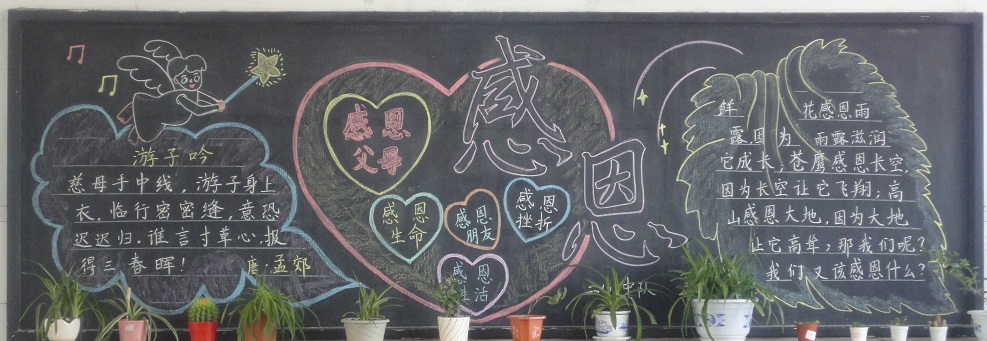 游子吟
慈母手中线，游子身上
衣．临行密密缝，意恐
迟迟归．谁言寸草心，报
得三春晖！ 唐．孟郊
感恩
感恩
父母
感恩
生命
感恩
朋友
感恩
挫折
感恩
生活
鲜花感恩雨
露，因为雨露滋润
它成长；苍鹰感恩长空，
因为长空让它飞翔；高
山感恩大地，因为大地
让它高耸；那我们呢？
我们又该感恩什么？
中队